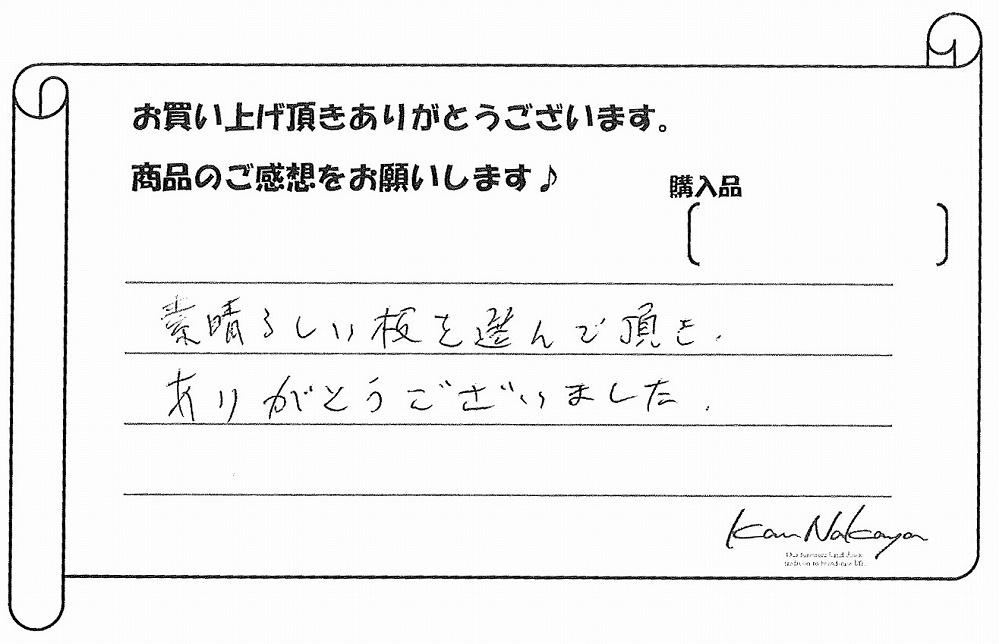 お買い上げ頂きありがとうございます。
商品のご感想をお願いします♪
購入品
素晴らしい板を選んで頂き、
ありがとうございました。
Kan Nakaya